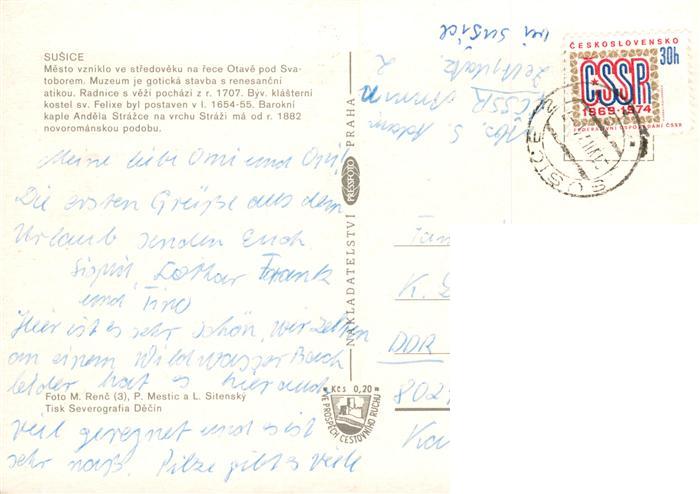 SUŠICE
Město vzniklo ve středověku na řece Otavě pod Sva-
toborem. Muzeum je gotická stavba s renesanční
atikou. Radnice s věží pochází z r. 1707. Býv. klášterní
kostel sv. Felixe byl postaven v l. 1654-55. Barokní
kaple Anděla Strážce na vrchu Stráži má od r. 1882
novorománskou podobu.
Meine liebe Omi und Opi!
Die ersten Grüße aus dem
Urlaub senden Euch
Lothar Frank
und Tino
Hier ist es sehr schön, wir zelten
an einem Wildwasser Bach
leider hat es hier auch
viel geregnet und es ist
sehr naß. Pilze gibt es viele
Foto M. Renč (3), P. Mestic a L. Sitenský
Tisk Severografia Děčín
NAKLADATELSTVÍ PRESSFOTO PRAHA
Kčs 0,20
VE PROSPĚCH CESTOVNÍHO RUCHU
in Sušice
Zeltplatz
ČSSR
ČESKOSLOVENSKO
30h
ČSSR
1969-1974
FEDERATIVNÍ USPOŘÁDÁNÍ ČSSR
SUŠICE
K.
DDR
802